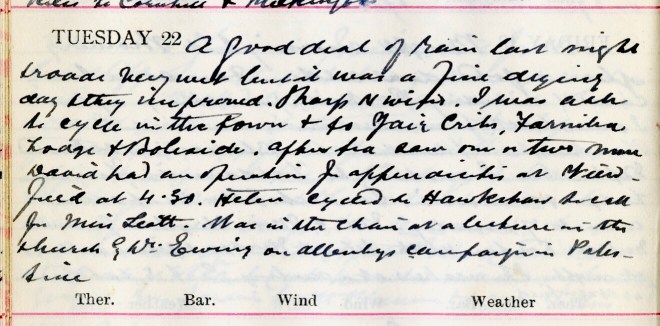 TUESDAY 22 A good deal of rain last night
& roads very wet but it was a fine drying
day & they improved. Sharp N wind. I was able
to cycle in the town & to Fair Crits,
Lodge & Boleside. After tea saw one or two more
David had an operation for appendicitis at
at 4.30. Helen cycled to Hawkshaw to call
for Miss Scott. Was in the chair at a lecture in the
church by Dr. Ewing on Allenbys campaign in Pales-
tine
Ther. Bar. Wind Weather